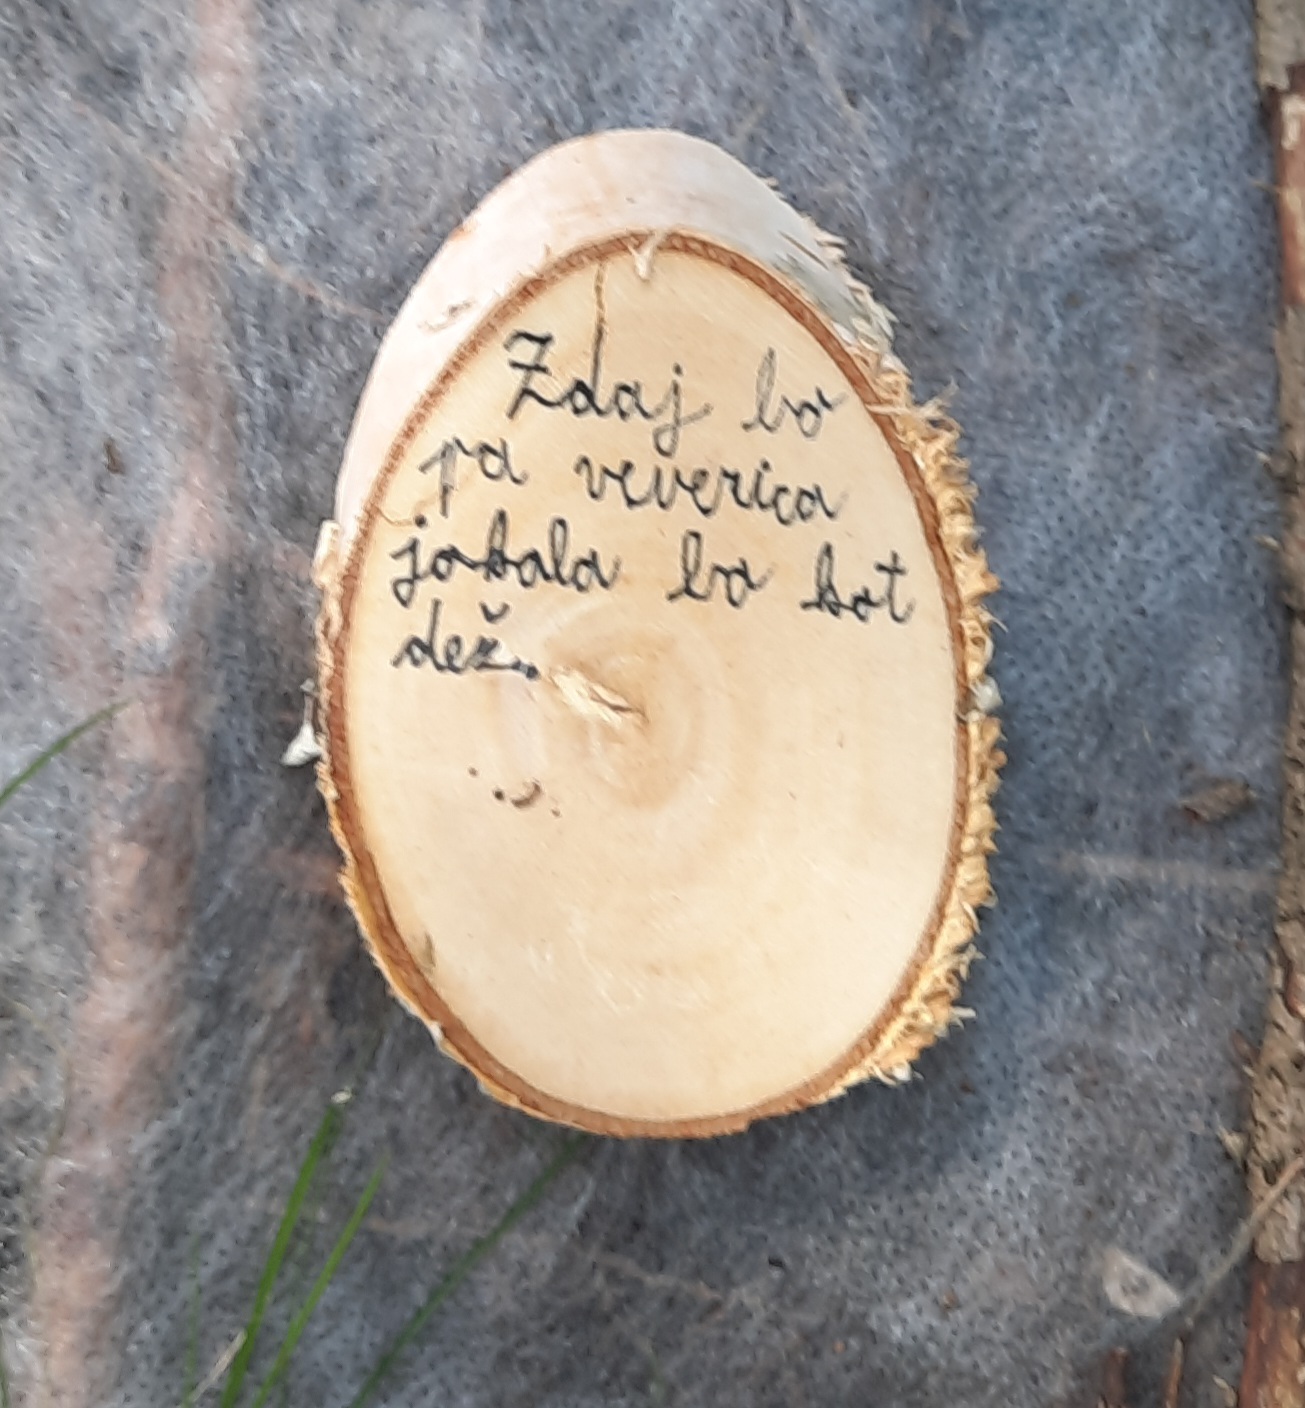 Zdaj bo
pa veverica
jokala bo kot
dež..